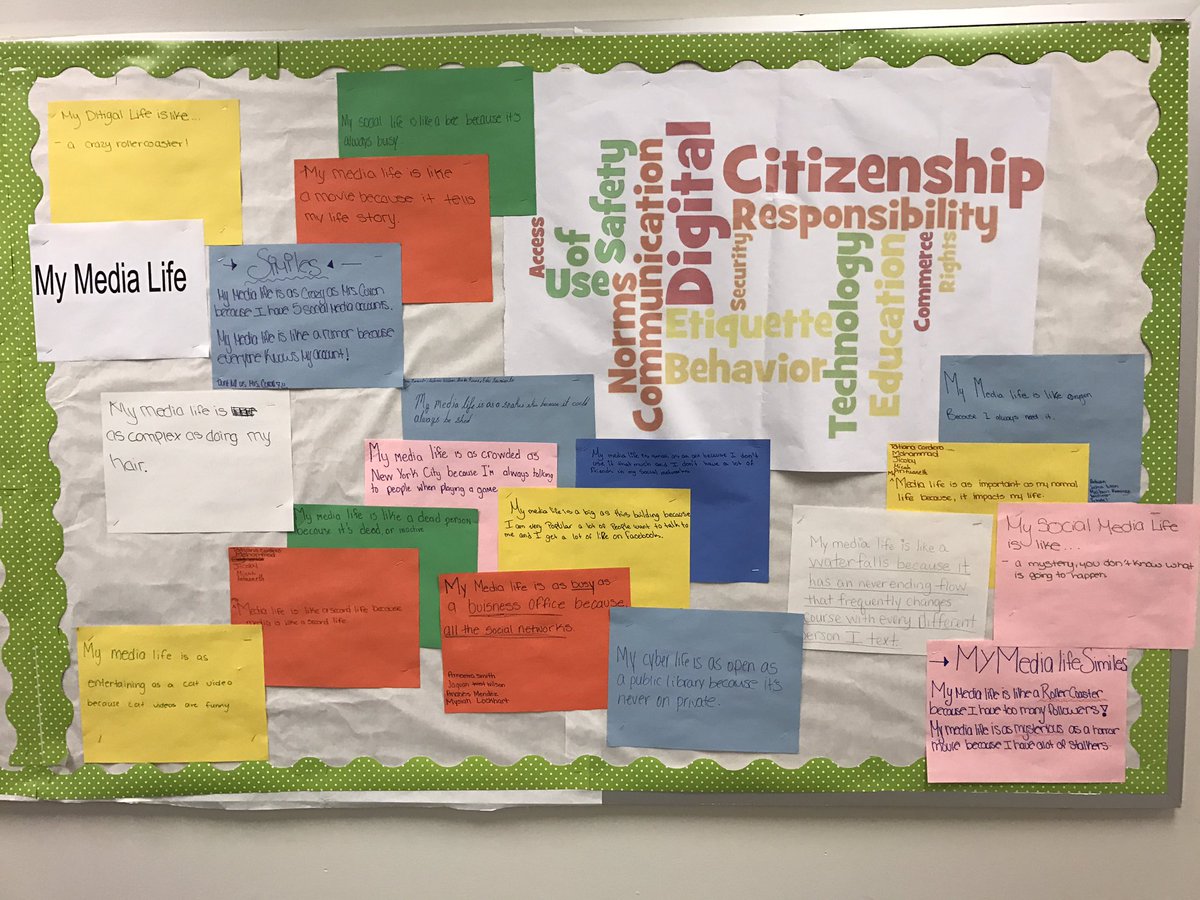 My Ditigal Life is like...
- a crazy rollercoaster!
My social life is like a bee because it's
always busy.
My media life is like
a movie because it tells
my life story.
My Media Life
Similes
My Media life is as Crazy as Mrs.
because I have 5 social Media accounts.
My Media life is like a rumor because
everyone knows My account!
Citizenship
Responsibility
Digital
Communication
Norms
Use of
Safety
Access
Security
Etiquette
Behavior
Technology
Education
Commerce
Rights
My media life is
as complex as doing my
hair.
My media life is as a because it could
always be
My media life is as crowded as
New York City because I'm always talking
to people when playing a game
My media life is as an because I don't
use it that much and I don't have a lot of
friends in my Social networks.
My Media life is like oxygen
Because I always need it.
Tatiana Cordero
Mohammad
Jicoby
Micah
Media life is as important as my normal
life because, it impacts my life.
My media life is like a dead person
because it's dead, or inactive
My media life is a big as this building because
I am very Popular a lot of People want to talk to
me and I get a lot of likes on Facebooks.
My media life is like a
waterfalls because it
has an neverending flow
that frequently changes
course with every different
person I text.
My Social Media Life
is like...
- a mystery, you don't know what
is going to happen
Jicoby
Micah
Media life is like a second life because
media is like a second life.
My Media life is as busy as
a buisness office because
all the social networks.
Smith
Wilson
Andres Mendez
Lockhart
My media life is as
entertaining as a cat video
because cat videos are funny
My cyber life is as open as
a public library because it's
never on private.
My Media life Similes
My Media life is like a Roller Coaster
because I have too many followers!
My media life is as mysterious as a horror
movie because I have alot of stalkers